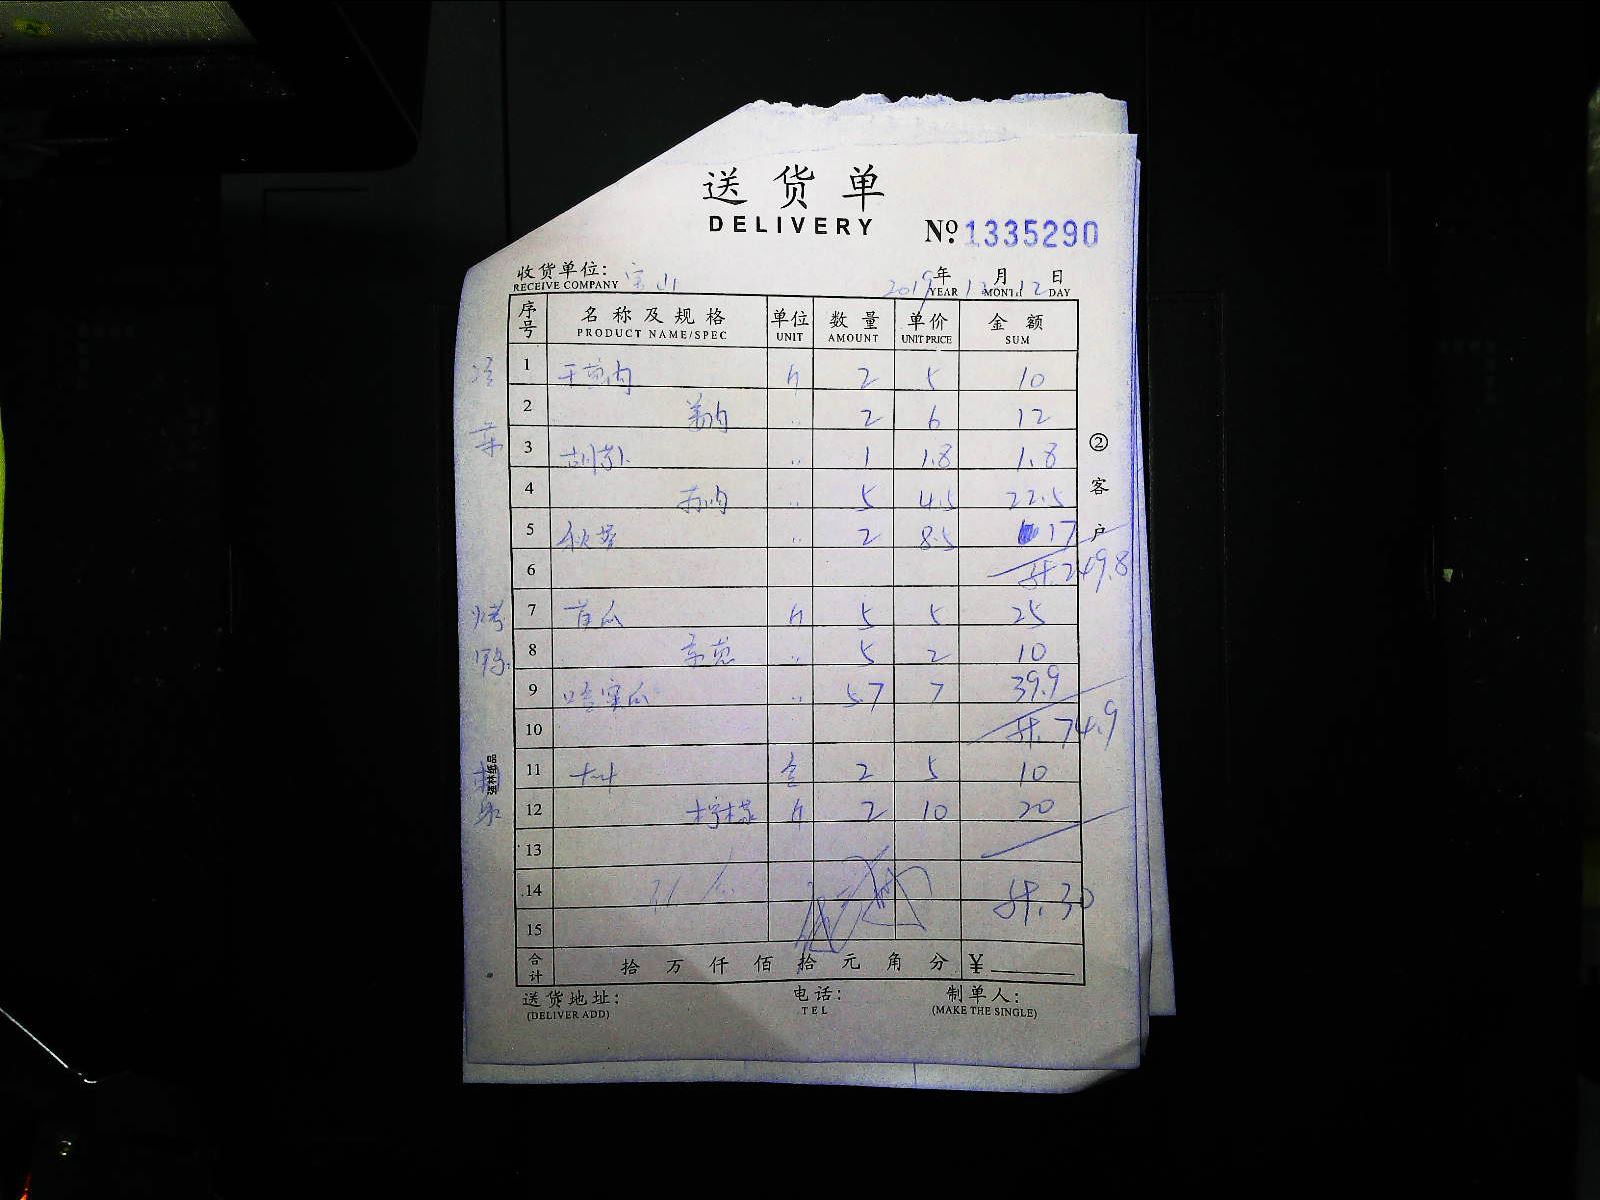 送货单
DELIVERY
№ 1335290
收货单位: 宝山 2019年12月12日
RECEIVE COMPANY YEAR MONTH DAY
序号 名称及规格 单位 数量 单价 金额
PRODUCT NAME/SPEC UNIT AMOUNT UNIT PRICE SUM
1 斤 2 5 10
2 〃 2 6 12
3 〃 1 1.8 1.8
4 〃 5 4.5 22.5
5 秋葵 〃 2 8.5 17
6 计249.8
7 斤 5 5 25
8 京葱 〃 5 2 10
9 哈密瓜 〃 5.7 7 39.9
10 计.74.9
11 2 5 10
12 柠檬 斤 2 10 20
13
14 计.30
15
合计 拾万仟佰拾元角分 ¥
送货地址: 电话: 制单人:
(DELIVER ADD) TEL (MAKE THE SINGLE)
②客户
烤鸭
强林纸品